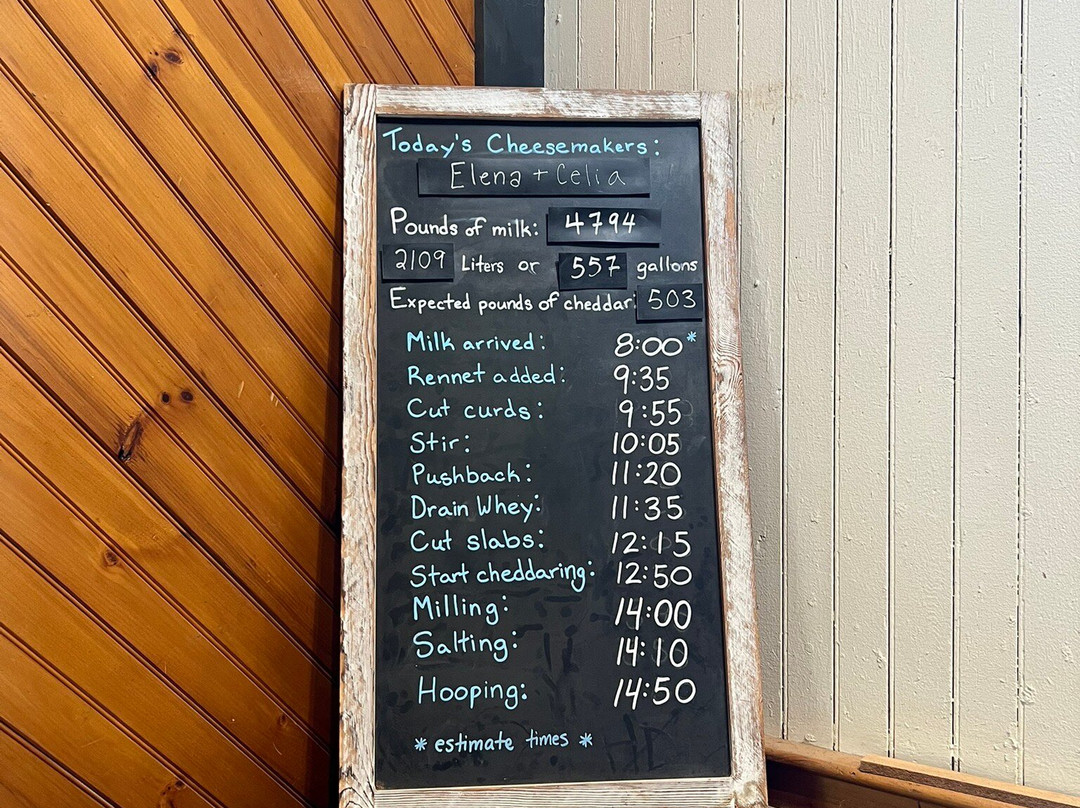 Today's Cheesemakers:
Elena + Celia
Pounds of milk: 4794
2109 Liters or 557 gallons
Expected pounds of cheddar: 503
Milk arrived: 8:00*
Rennet added: 9:35
Cut curds: 9:55
Stir: 10:05
Pushback: 11:20
Drain Whey: 11:35
Cut slabs: 12:15
Start cheddaring: 12:50
Milling: 14:00
Salting: 14:10
Hooping: 14:50
* estimate times *